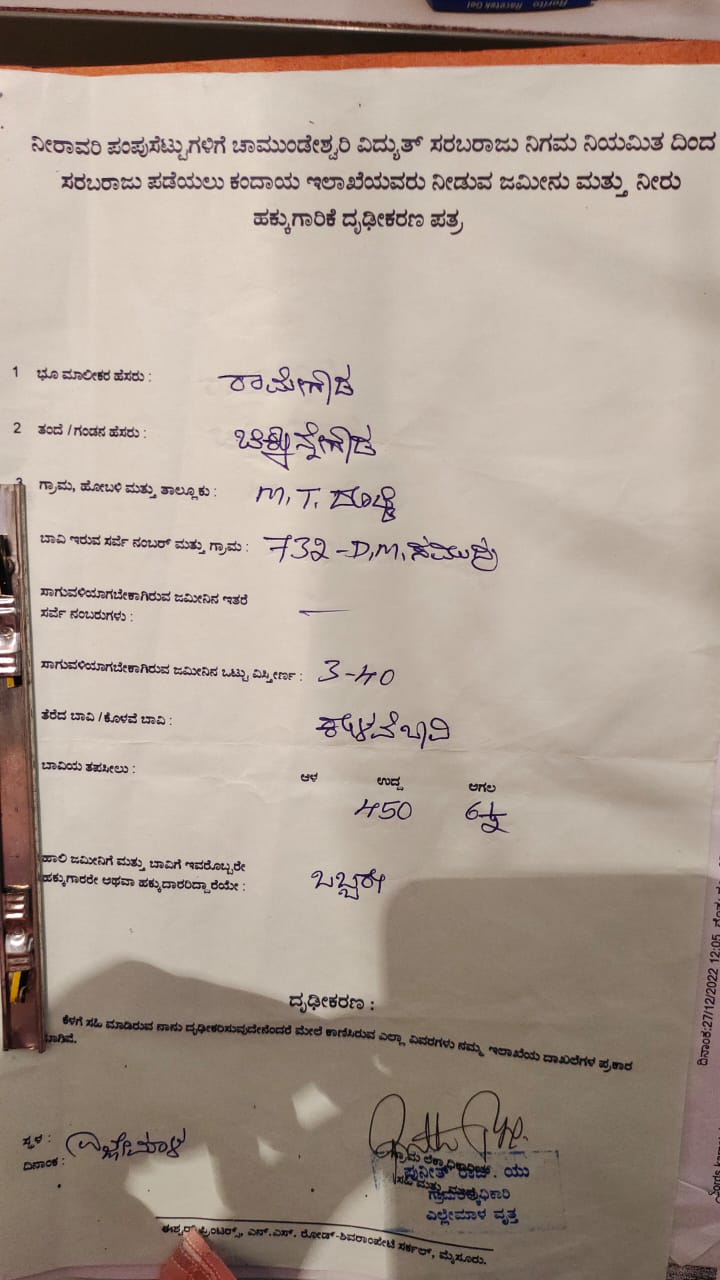 Racetek Gel
ನೀರಾವರಿ ಪಂಪುಸೆಟ್ಟುಗಳಿಗೆ ಚಾಮುಂಡೇಶ್ವರಿ ವಿದ್ಯುತ್ ಸರಬರಾಜು ನಿಗಮ ನಿಯಮಿತ ದಿಂದ
ಸರಬರಾಜು ಪಡೆಯಲು ಕಂದಾಯ ಇಲಾಖೆಯವರು ನೀಡುವ ಜಮೀನು ಮತ್ತು ನೀರು
ಹಕ್ಕುಗಾರಿಕೆ ದೃಢೀಕರಣ ಪತ್ರ
1 ಭೂ ಮಾಲೀಕರ ಹೆಸರು : ರಾಮೇಗೌಡ
2 ತಂದೆ / ಗಂಡನ ಹೆಸರು :
3 ಗ್ರಾಮ, ಹೋಬಳಿ ಮತ್ತು ತಾಲ್ಲೂಕು : M.T.
ಬಾವಿ ಇರುವ ಸರ್ವೆ ನಂಬರ್ ಮತ್ತು ಗ್ರಾಮ : 732 - D.M. ಸಮುದ್ರ
ಸಾಗುವಳಿಯಾಗಬೇಕಾಗಿರುವ ಜಮೀನಿನ ಇತರೆ
ಸರ್ವೆ ನಂಬರುಗಳು : —
ಸಾಗುವಳಿಯಾಗಬೇಕಾಗಿರುವ ಜಮೀನಿನ ಒಟ್ಟು ವಿಸ್ತೀರ್ಣ : 3-40
ತೆರೆದ ಬಾವಿ / ಕೊಳವೆ ಬಾವಿ : ಕೊಳವೆ ಬಾವಿ
ಬಾವಿಯ ತಪಸೀಲು : ಆಳ ಉದ್ದ ಅಗಲ
450 6½
ಹಾಲಿ ಜಮೀನಿಗೆ ಮತ್ತು ಬಾವಿಗೆ ಇವರೊಬ್ಬರೇ
ಹಕ್ಕುಗಾರರೇ ಅಥವಾ ಹಕ್ಕುದಾರರಿದ್ದಾರೆಯೇ : ಒಬ್ಬರೇ
ದೃಢೀಕರಣ :
ಕೆಳಗೆ ಸಹಿ ಮಾಡಿರುವ ನಾನು ದೃಢೀಕರಿಸುವುದೇನೆಂದರೆ ಮೇಲೆ ಕಾಣಿಸಿರುವ ಎಲ್ಲಾ ವಿವರಗಳು ನಮ್ಮ ಇಲಾಖೆಯ ದಾಖಲೆಗಳ ಪ್ರಕಾರ
ವಾಗಿವೆ.
ಸ್ಥಳ : ಎಲ್ಲೇಮಾಳ
ದಿನಾಂಕ :
ಪುನೀತ್ ರಾಜ್. ಯು
ಎಲ್ಲೇಮಾಳ ವೃತ್ತ
ಈಶ್ವರ್ ಪ್ರಿಂಟರ್ಸ್, ಎನ್.ಎಸ್. ರೋಡ್-ಶಿವರಾಂಪೇಟೆ ಸರ್ಕಲ್, ಮೈಸೂರು.
ದಿನಾಂಕ:27/12/2022 12:05